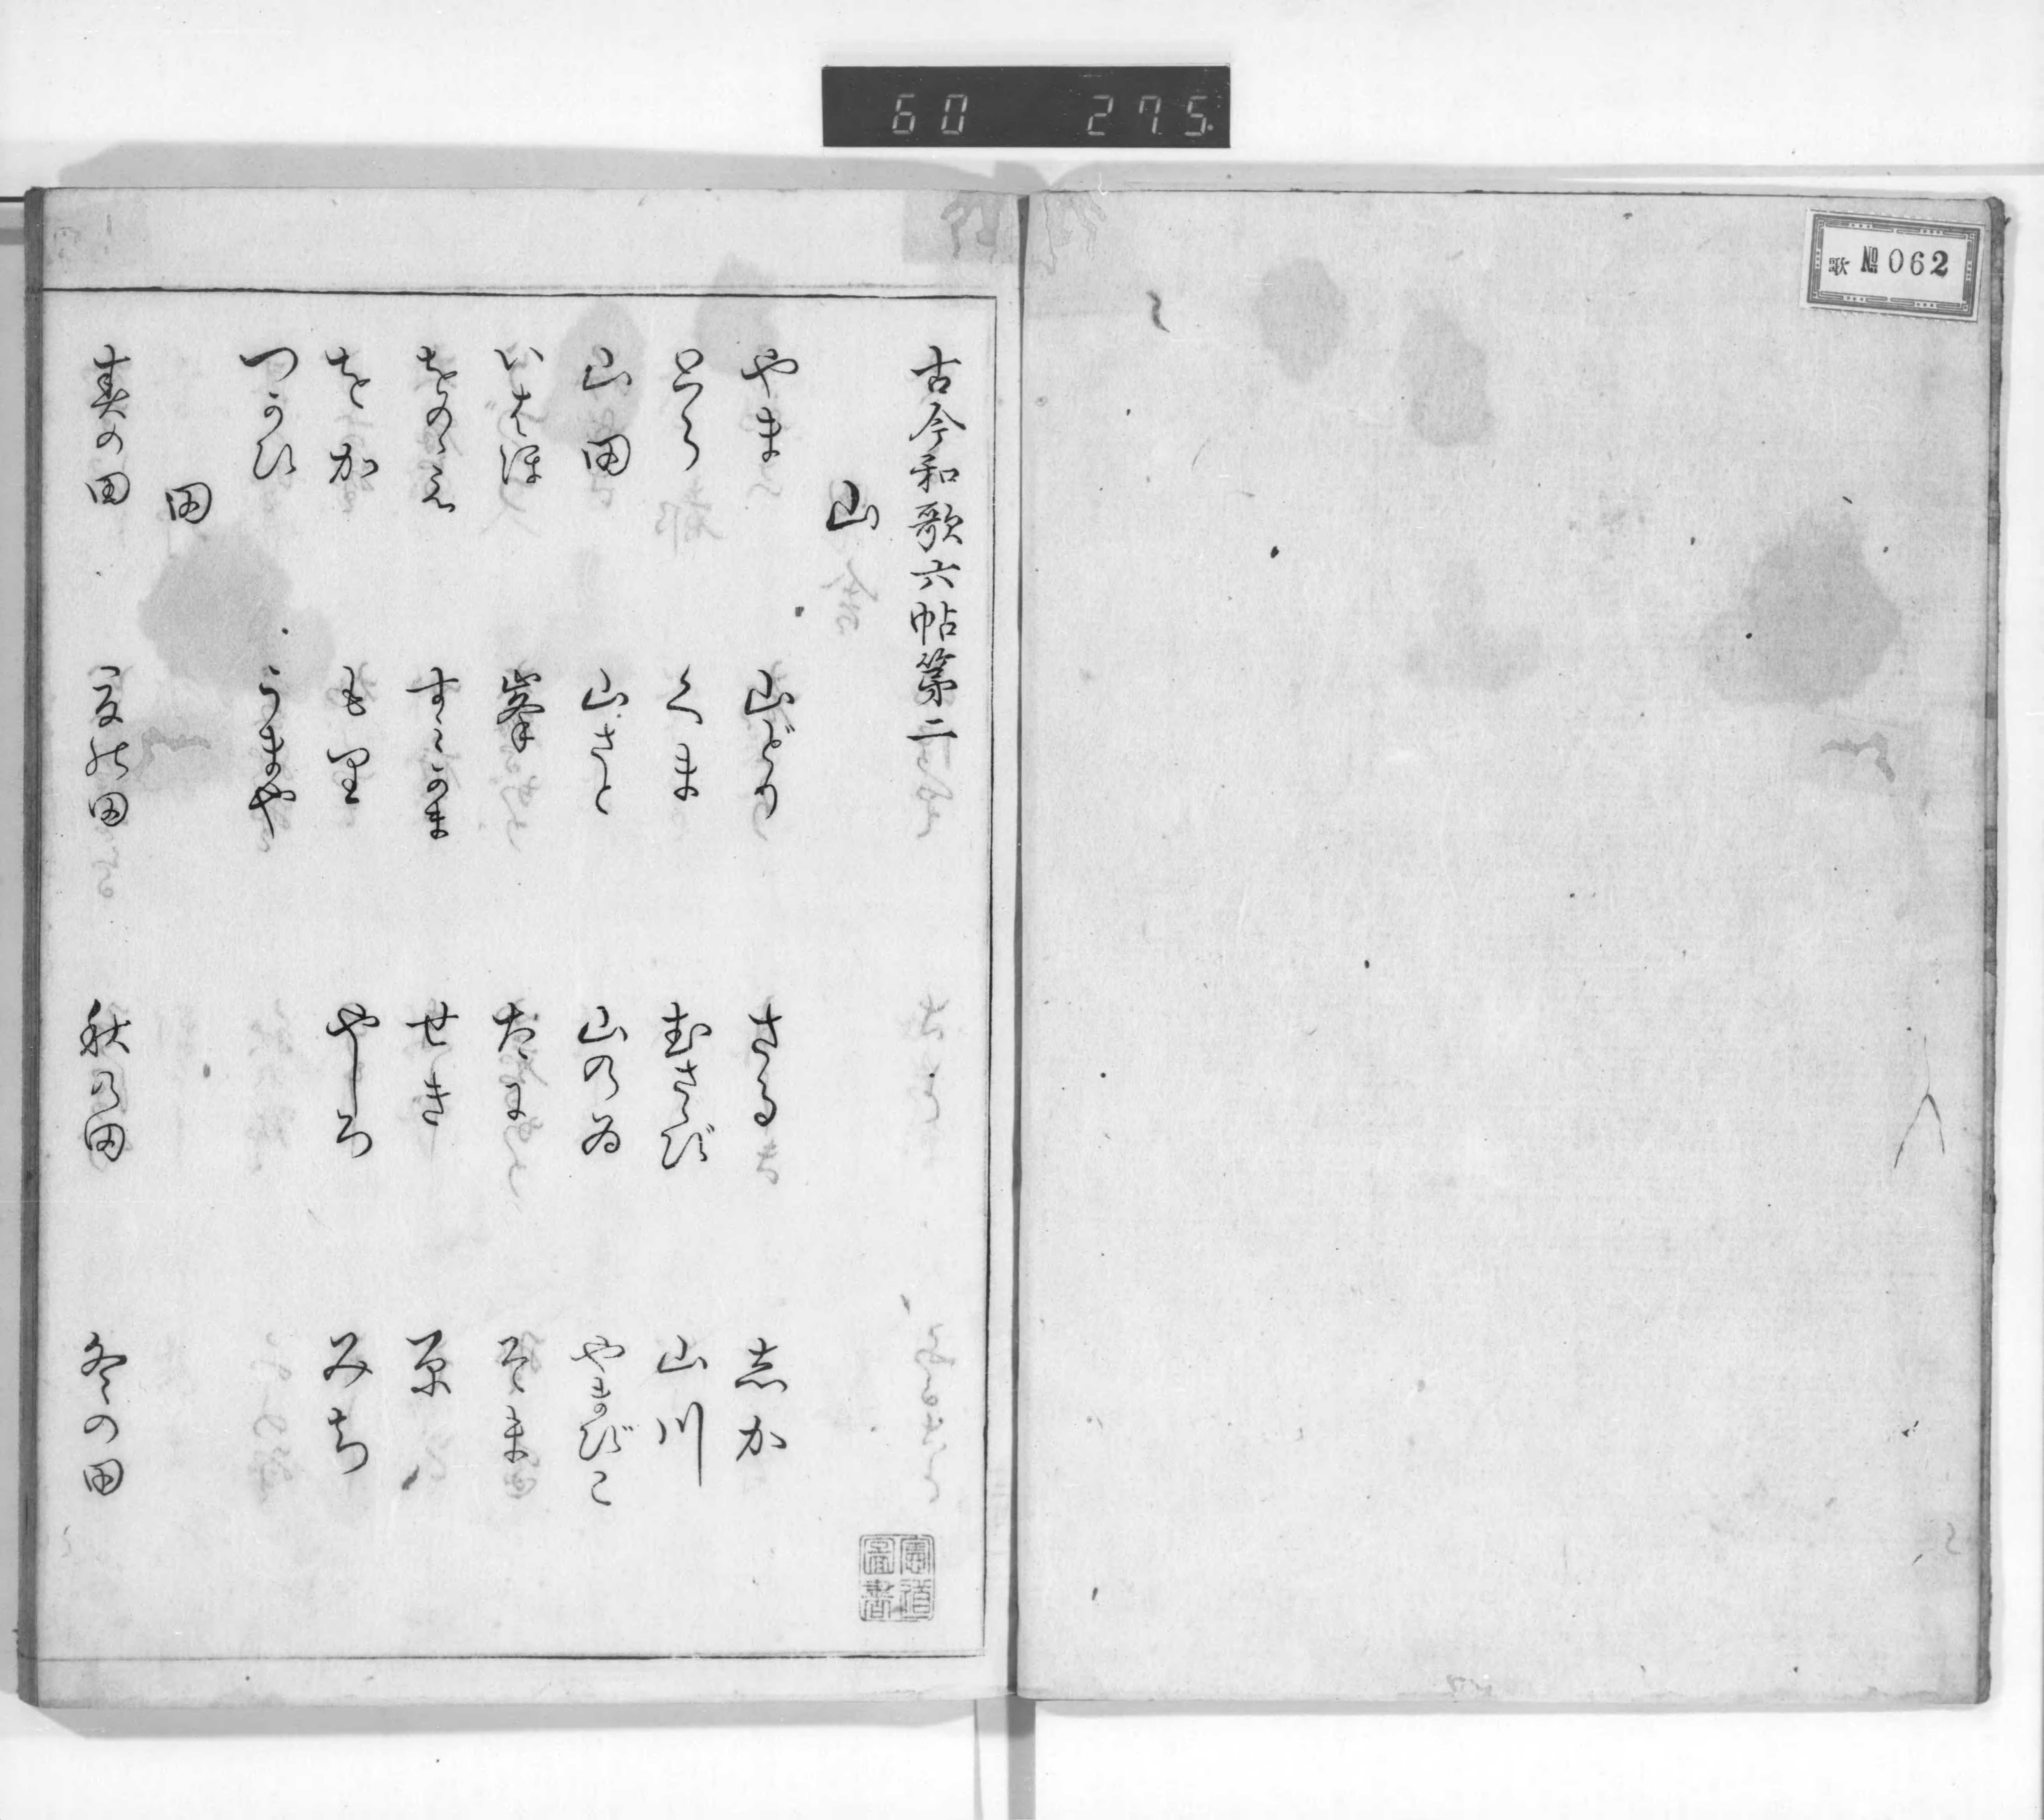 60 275
歌 № 062
古今和歌六帖第二
山
やま 山どり さる 志か
とら くま むさゝび 山川
山田 山ざと 山の井 やまびこ
いはほ 峯 たに そま
をのゝえ すみがま せき 原
をか もり やしろ みち
つかひ うまや
田
春の田 夏の田 秋の田 冬の田